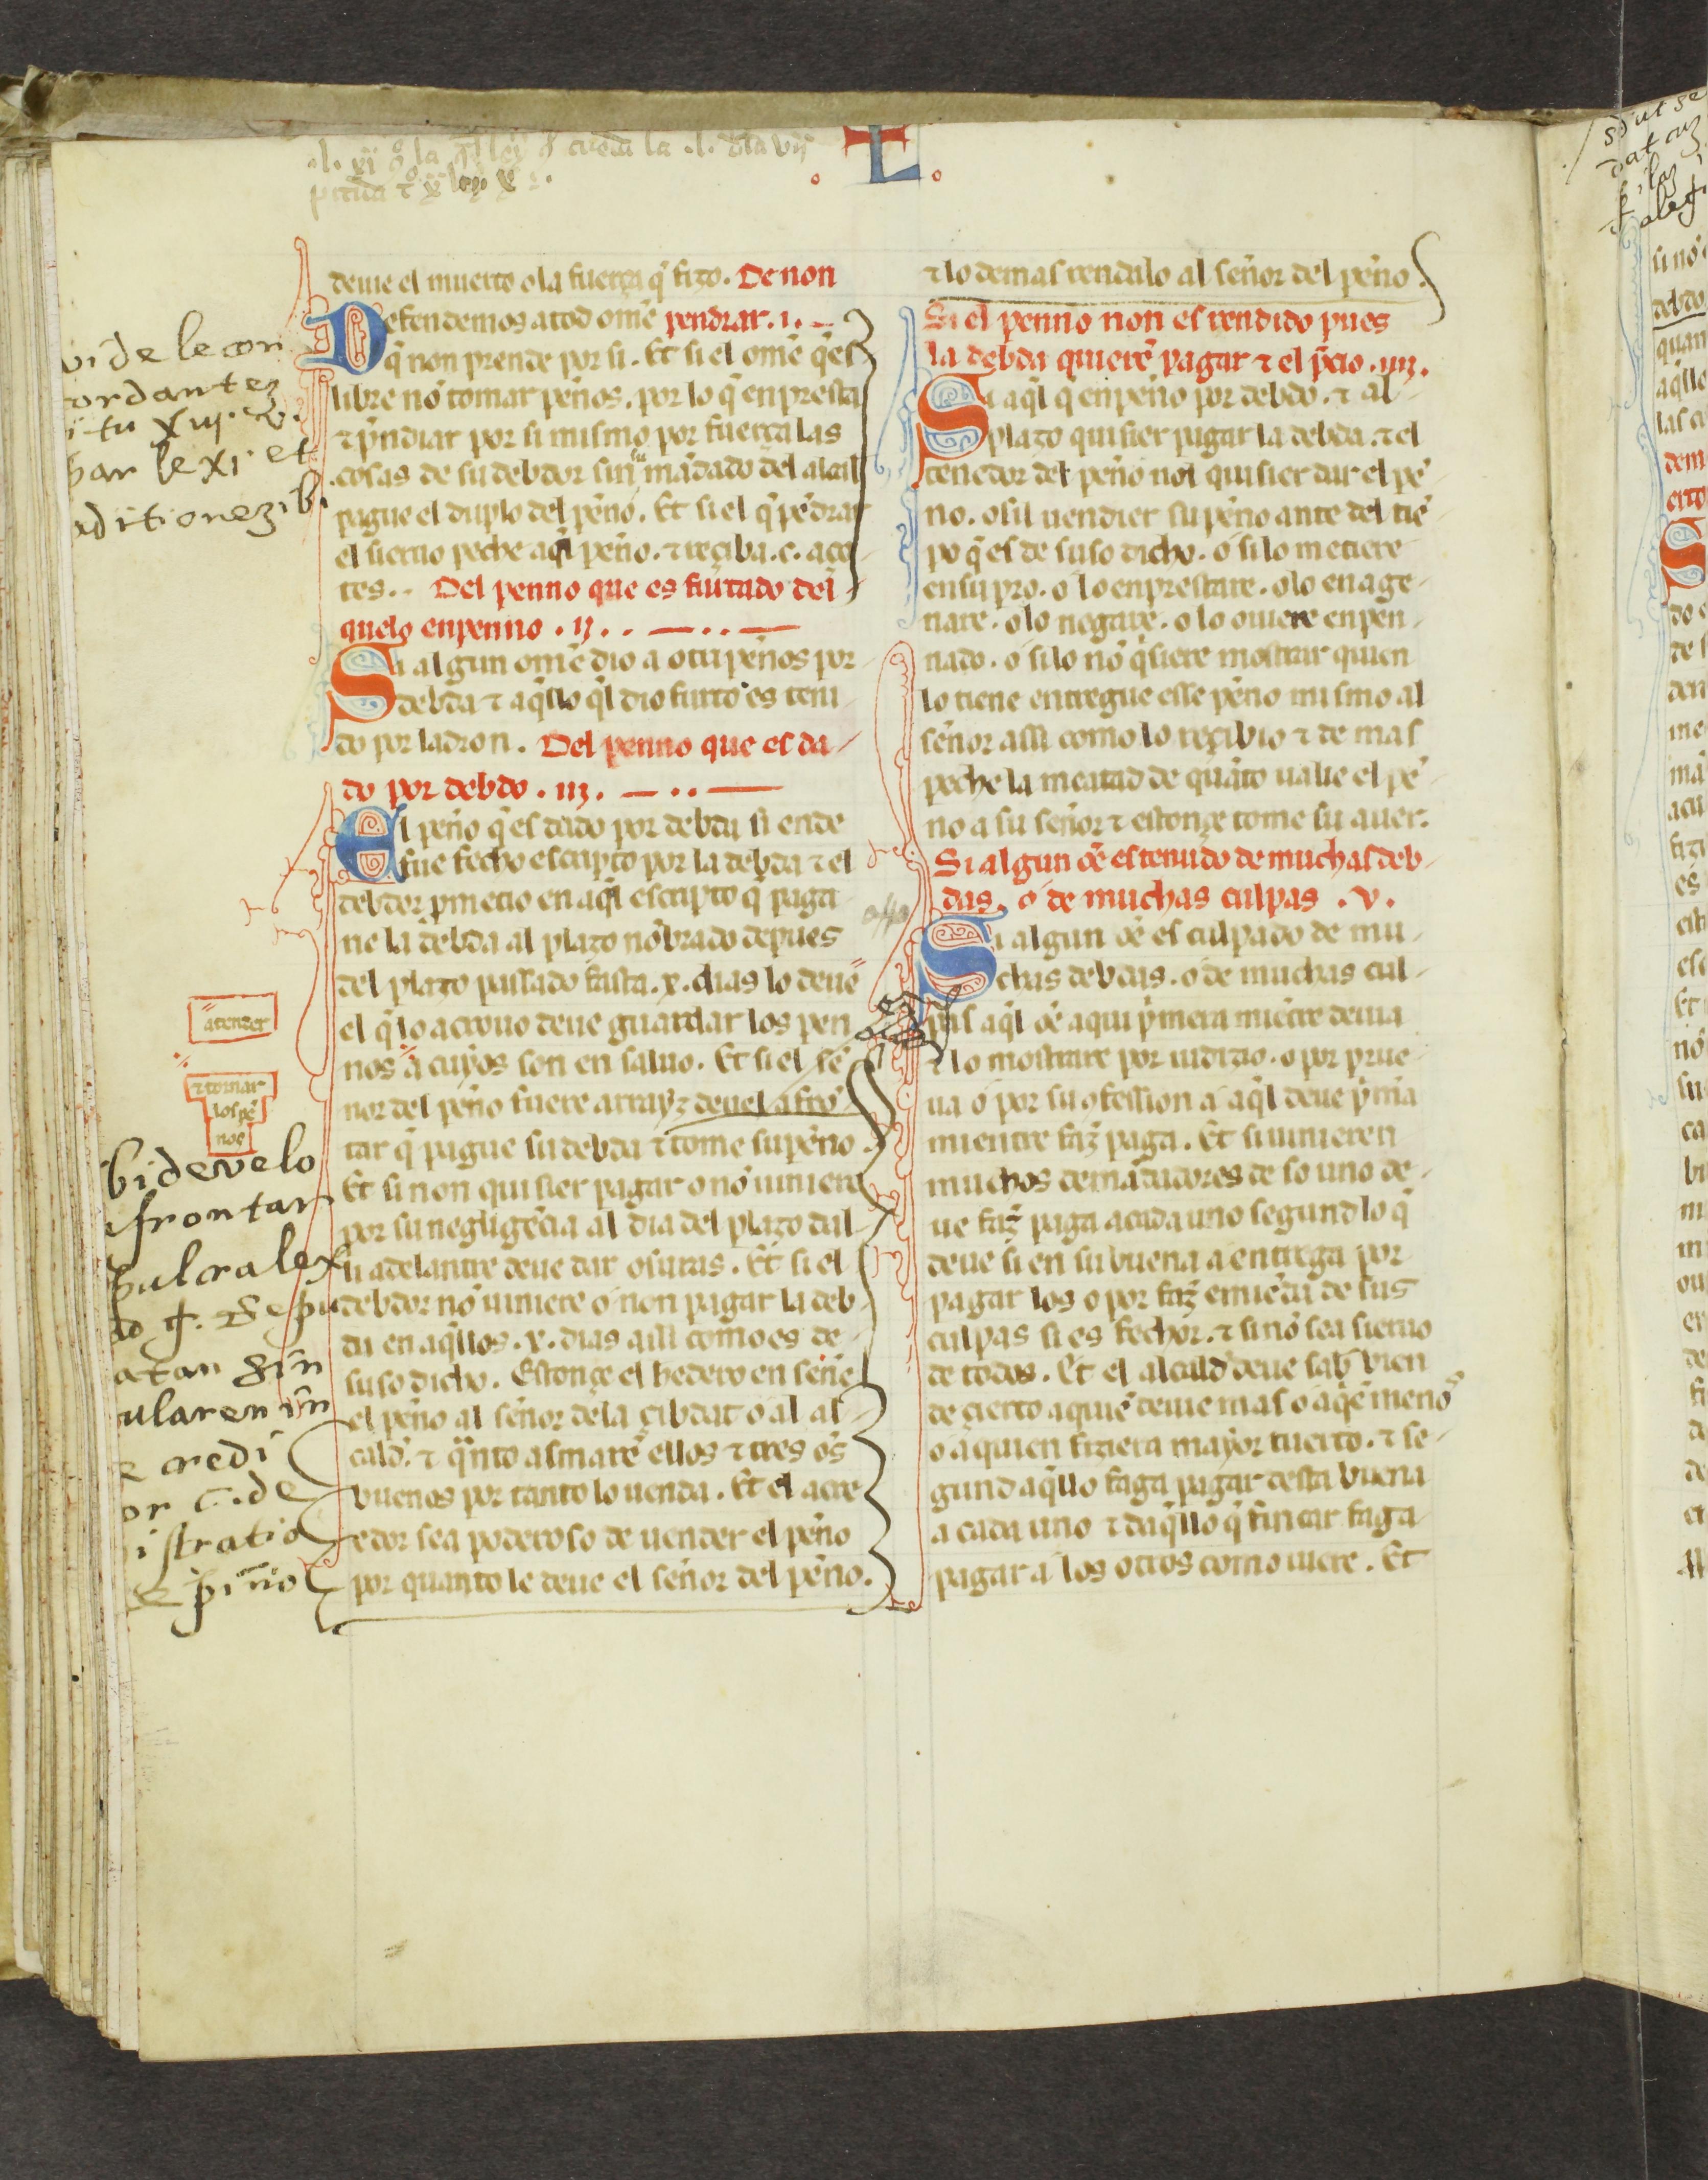 L
deue el muerto o la fuerça q̄ fizo. De non
Defendemos a tod omē pendrar .i.
q̄ non prende por si. Et si el omē q̄ es
libre nō tomar pēnos. por lo q̄ enpresta
⁊ p̄ndiar por si mismo por fuerça las
cosas de su debdor sin mādado del alcal
pague el duplo del pēno. Et si el q̄ pēdrar
el sieruo peche aq̄l pēno. ⁊ reçiba .c. aço
tes. Del penno que es furtado del
quelo enpenno .ij.
Si algun omē dio a otri pēnos por
debda ⁊ aq̄llo q̄l dio furto es teni
do por ladron. Del penno que es da
do por debdo .iij.
El pēno q̄ es dado por debda si ende
fue fecho escripto por la debda ⁊ el
debdor p̄metio en aq̄l escripto q̄ paga
ne la debda al plazo nōbrado depues
del plazo passado fasta .x. dias lo deue
el q̄ lo acrouo deue guardar los pen
nos a cuyos son en saluo. Et si el sē
nor del pēno fuere arrayz deuel afrō
tar q̄ pague su debda ⁊ tome su pēno.
Et si non quisier pagar o nō uiniere
por su negligēcia al dia del plazo dal
li adelantre deue dar osuras. Et si el
debdor nō uiniere o non pagar la deb
da en aq̄llos .x. dias assi como es de
suso dicho. Estonçe el hedero en sene
el pēno al sēnor dela çibdat o al al
cald̄. ⁊ q̄nto asmarē ellos ⁊ tres oēs
buenos por tanto lo uenda. Et el acre
edor sea poderoso de uender el pēno
por quanto le deue el sēnor del pēno.
⁊ lo demas rendalo al sēnor del pēno.
Si el penno non es rendido pues
la debda quierē pagar ⁊ el p̄cio .iiij.
Si aq̄l q̄ enpēno por debdo. ⁊ al
plazo quisier pagar la debda. ⁊ el
tenedor del pēno nol quisier dar el pē
no. o sil uendier su pēno ante del tiē
po q̄ es de suso dicho. o si lo metiere
en su pro. o lo enprestare. o lo enage
nare. o lo negare. o lo ouiere enpen
nado. o si lo nō q̄siere mostrar quien
lo tiene entregue esse pēno mismo al
sēnor assi como lo reçibio ⁊ de mas
peche la meatad de quāto ualie el pē
no a su sēnor ⁊ estonçe tome su auer.
Si algun oē es tenudo de muchas deb
das. o de muchas culpas .v.
Si algun oē es culpado de mu
chas debdas. o de muchas cul
pas aq̄l oē aqui p̄mera miētre deuia
⁊ lo mostrare por iudizio. o por prue
ua o por su ofession a aq̄l deue p̄m̄a
mientre faz̄ paga. Et si uinieren
muchos demādadores de so uno de
ue faz̄ paga a cada uno segund lo q̄
deue si en su buena a entrega por
pagar los o por faz̄ emiēda de sus
culpas si es fechor. ⁊ si nō sea sieruo
de todos. Et el alcald̄ deue sab̄ bien
de çierto a quiē deue mas o a q̄ē menos
o a quien fiziera mayor tuerto. ⁊ se
gund aq̄llo faga pagar desta buena
a cada uno ⁊ daq̄llo q̄ fincar faga
pagar a los otros como uiere. Et
atender
⁊ tomar
los pē
nos
bide velo
frontar